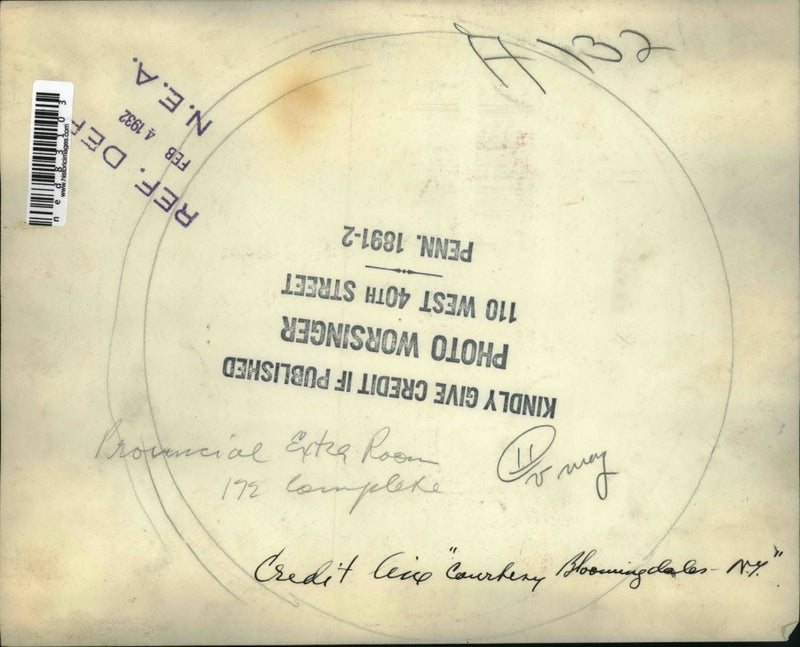 132
N.E.A.
FEB 4 1932
REF. DEP
www.historicimages.com
ned83103
KINDLY GIVE CREDIT IF PUBLISHED
PHOTO WORSINGER
110 WEST 40TH STREET
PENN. 1891-2
Provincial Extra Room
192 Complete
11
Credit line "Courtesy Bloomingdales - N.Y."